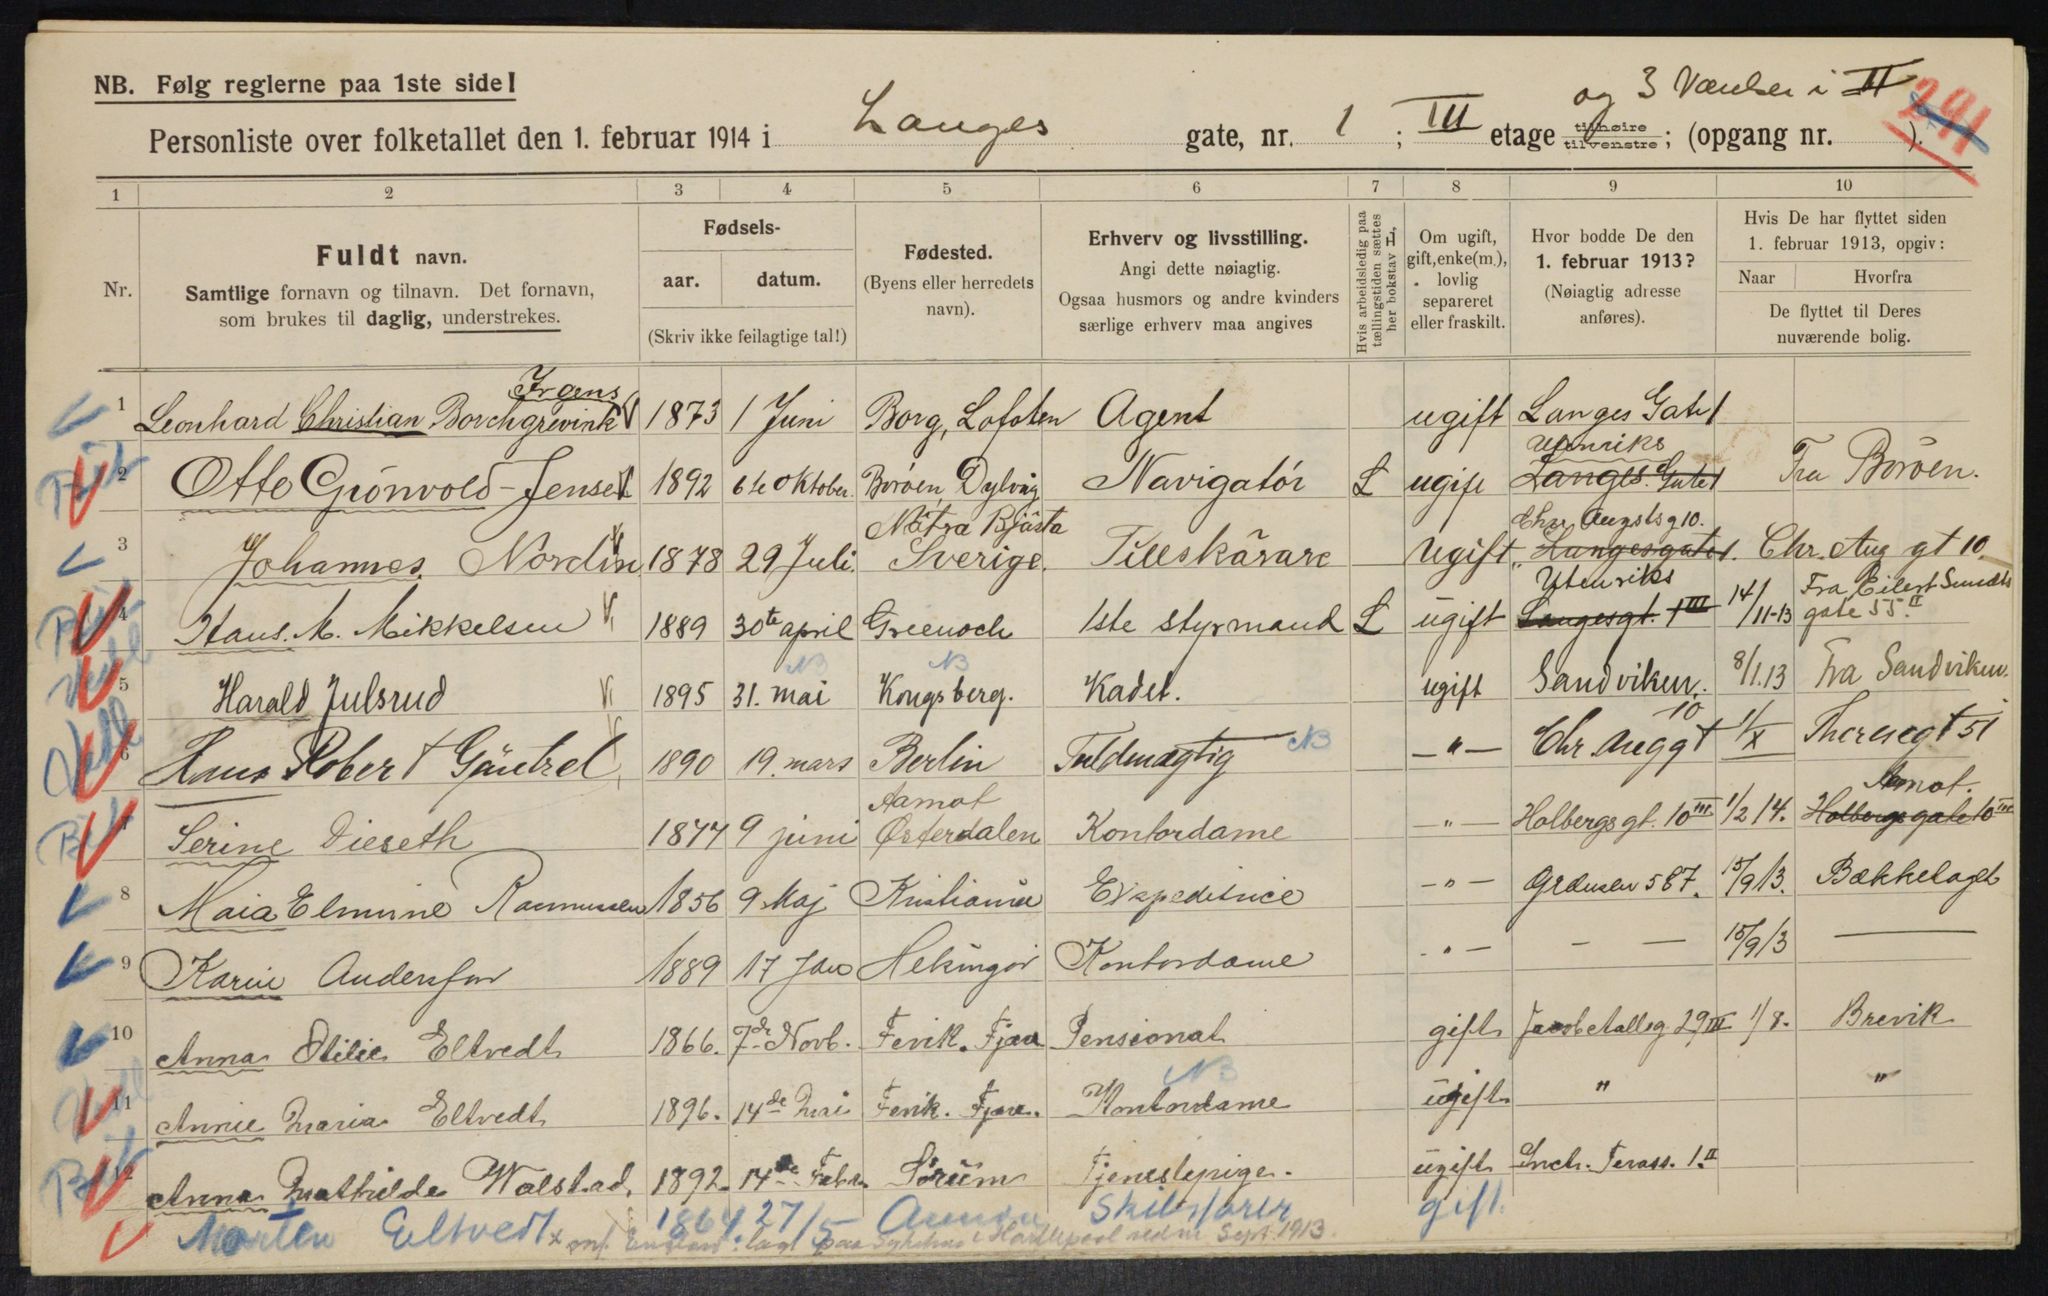 NB. Følg reglerne paa 1ste side!
og 3 Værelser i II
Personliste over folketallet den 1. februar 1914 i Langes gate, nr. 1 ; III etage tilhøire tilvenstre ; (opgang nr. ). 291
1 2 3 4 5 6 7 8 9 10
Nr.
Fuldt navn.
Samtlige fornavn og tilnavn. Det fornavn,
som brukes til daglig, understrekes.
Fødsels-
aar. datum.
(Skriv ikke feilagtige tal!)
Fødested.
(Byens eller herredets
navn).
Erhverv og livsstilling.
Angi dette nøiagtig.
Ogsaa husmors og andre kvinders
særlige erhverv maa angives
Hvis arbeidsledig paa
tællingstiden sættes
her bokstav L,
Om ugift,
gift, enke(m.),
lovlig
separeret
eller fraskilt.
Hvor bodde De den
1. februar 1913?
(Nøiagtig adresse
anføres).
Hvis De har flyttet siden
1. februar 1913, opgiv:
Naar Hvorfra
De flyttet til Deres
nuværende bolig.
Irgens
1 Leonhard Christian Borchgrevink 1873 1 Juni Borg, Lofoten Agent ugift Langes Gate 1
Utenriks
2 Otto Grönvold-Jensen 1892 6te Oktober. Boröen Dyvig Navigatör L ugift Langes Gate 1 Fra Boröen.
Nätra Bjästa Chr Augsts g 10.
3 Johannes Nordin 1878 29 Juli. Sverige. Tillskärare ugift Langesgate 1. Chr. Aug gt 10
Utenriks
4 Hans. M. Mikkelsen 1889 30te april Greenock 1ste styrmand L ugift Langesgt. 1 III 14/11-13 Fra Eilert Sundts gate 55 II
NB NB
5 Harald Julsrud 1895 31. mai Kongsberg. Kadet. ugift Sandviken. 8/1.13 Fra Sandviken.
6 Hans Robert Gäntzel 1890 19. mars Berlin Fuldmægtig NB -"- Chr Auggt 10 1/X Theresegt 51
Aamot Aamot.
7 Serine Dieseth 1877 9 juni Østerdalen Kontordame -"- Holbergsgt. 10 III 1/2 14. Holbergsgate 10 III
8 Maia Elmine Rasmussen 1856 9 Maj Kristiania Expeditrice -"- 587. 15/9 13. Bækkelaget
9 Karin Andersson 1889 17 Jan Helsingör Kontordame -"- — — 15/9 13 —
10 Anna Otilie Eltvedt 1866. 7de Novb. Fevik. Fjære Pensionat gift Jacob Aallsg 29 III 1/8. Brevik
NB
11 Annie Maria Eltvedt 1896. 14de Mai Fevik. Fjære. Kontordame ugift " "
12 Anna Mathilde Wolstad 1892. 14de Febr. Sörum Tjenestepige. ugift Terass. 1. II
Morten Eltvedt 1864 27/5 Skibsförer gift.
x England: lagt paa Sykehus i Hartlepool siden Sept. 1913.